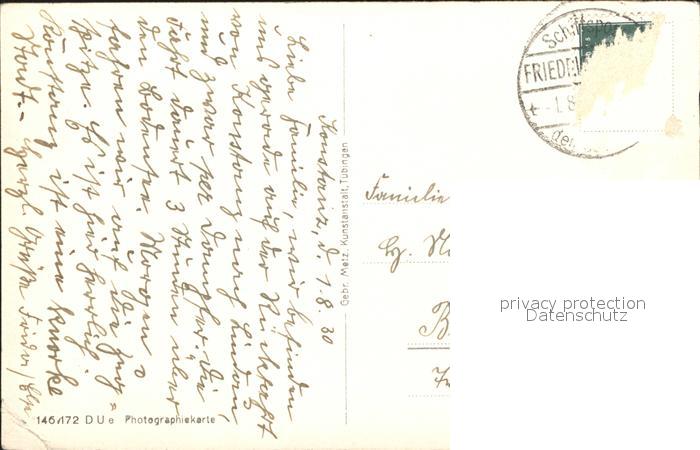 Konstanz, d. 1.8.30
Liebe Familie, wir befinden
uns gerade auf der Rückfahrt
von Konstanz nach Lindau,
und zwar per Dampfer. Die
Fahrt dauert 3 Stunden über
den Bodensee. Morgen
fahren wir auf die Zug-
spitze. Es ist hier herrlich.
Konstanz ist eine
Stadt. – Herzl. Grüße
Gebr. Metz, Kunstanstalt, Tübingen
146/172 D U e Photographiekarte
Schiffspo
FRIEDRI
1.8
Familie
H.
B
privacy protection
Datenschutz